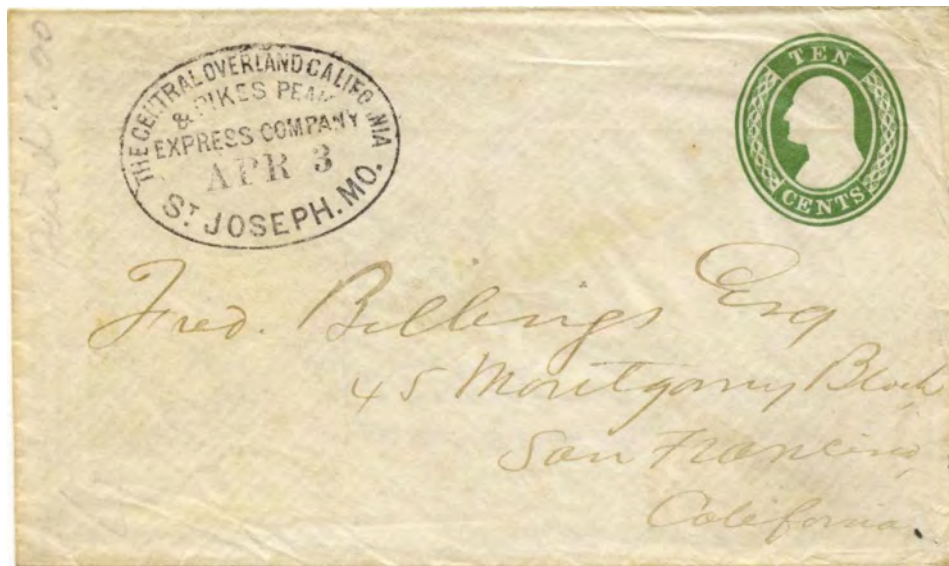 THE CENTRAL OVERLAND CALIFORNIA
& PIKES PEAK
EXPRESS COMPANY
APR 3
ST JOSEPH. MO.
TEN
CENTS
Fred. Billings Esq
45 Montgomry Block
San Francisco,
California